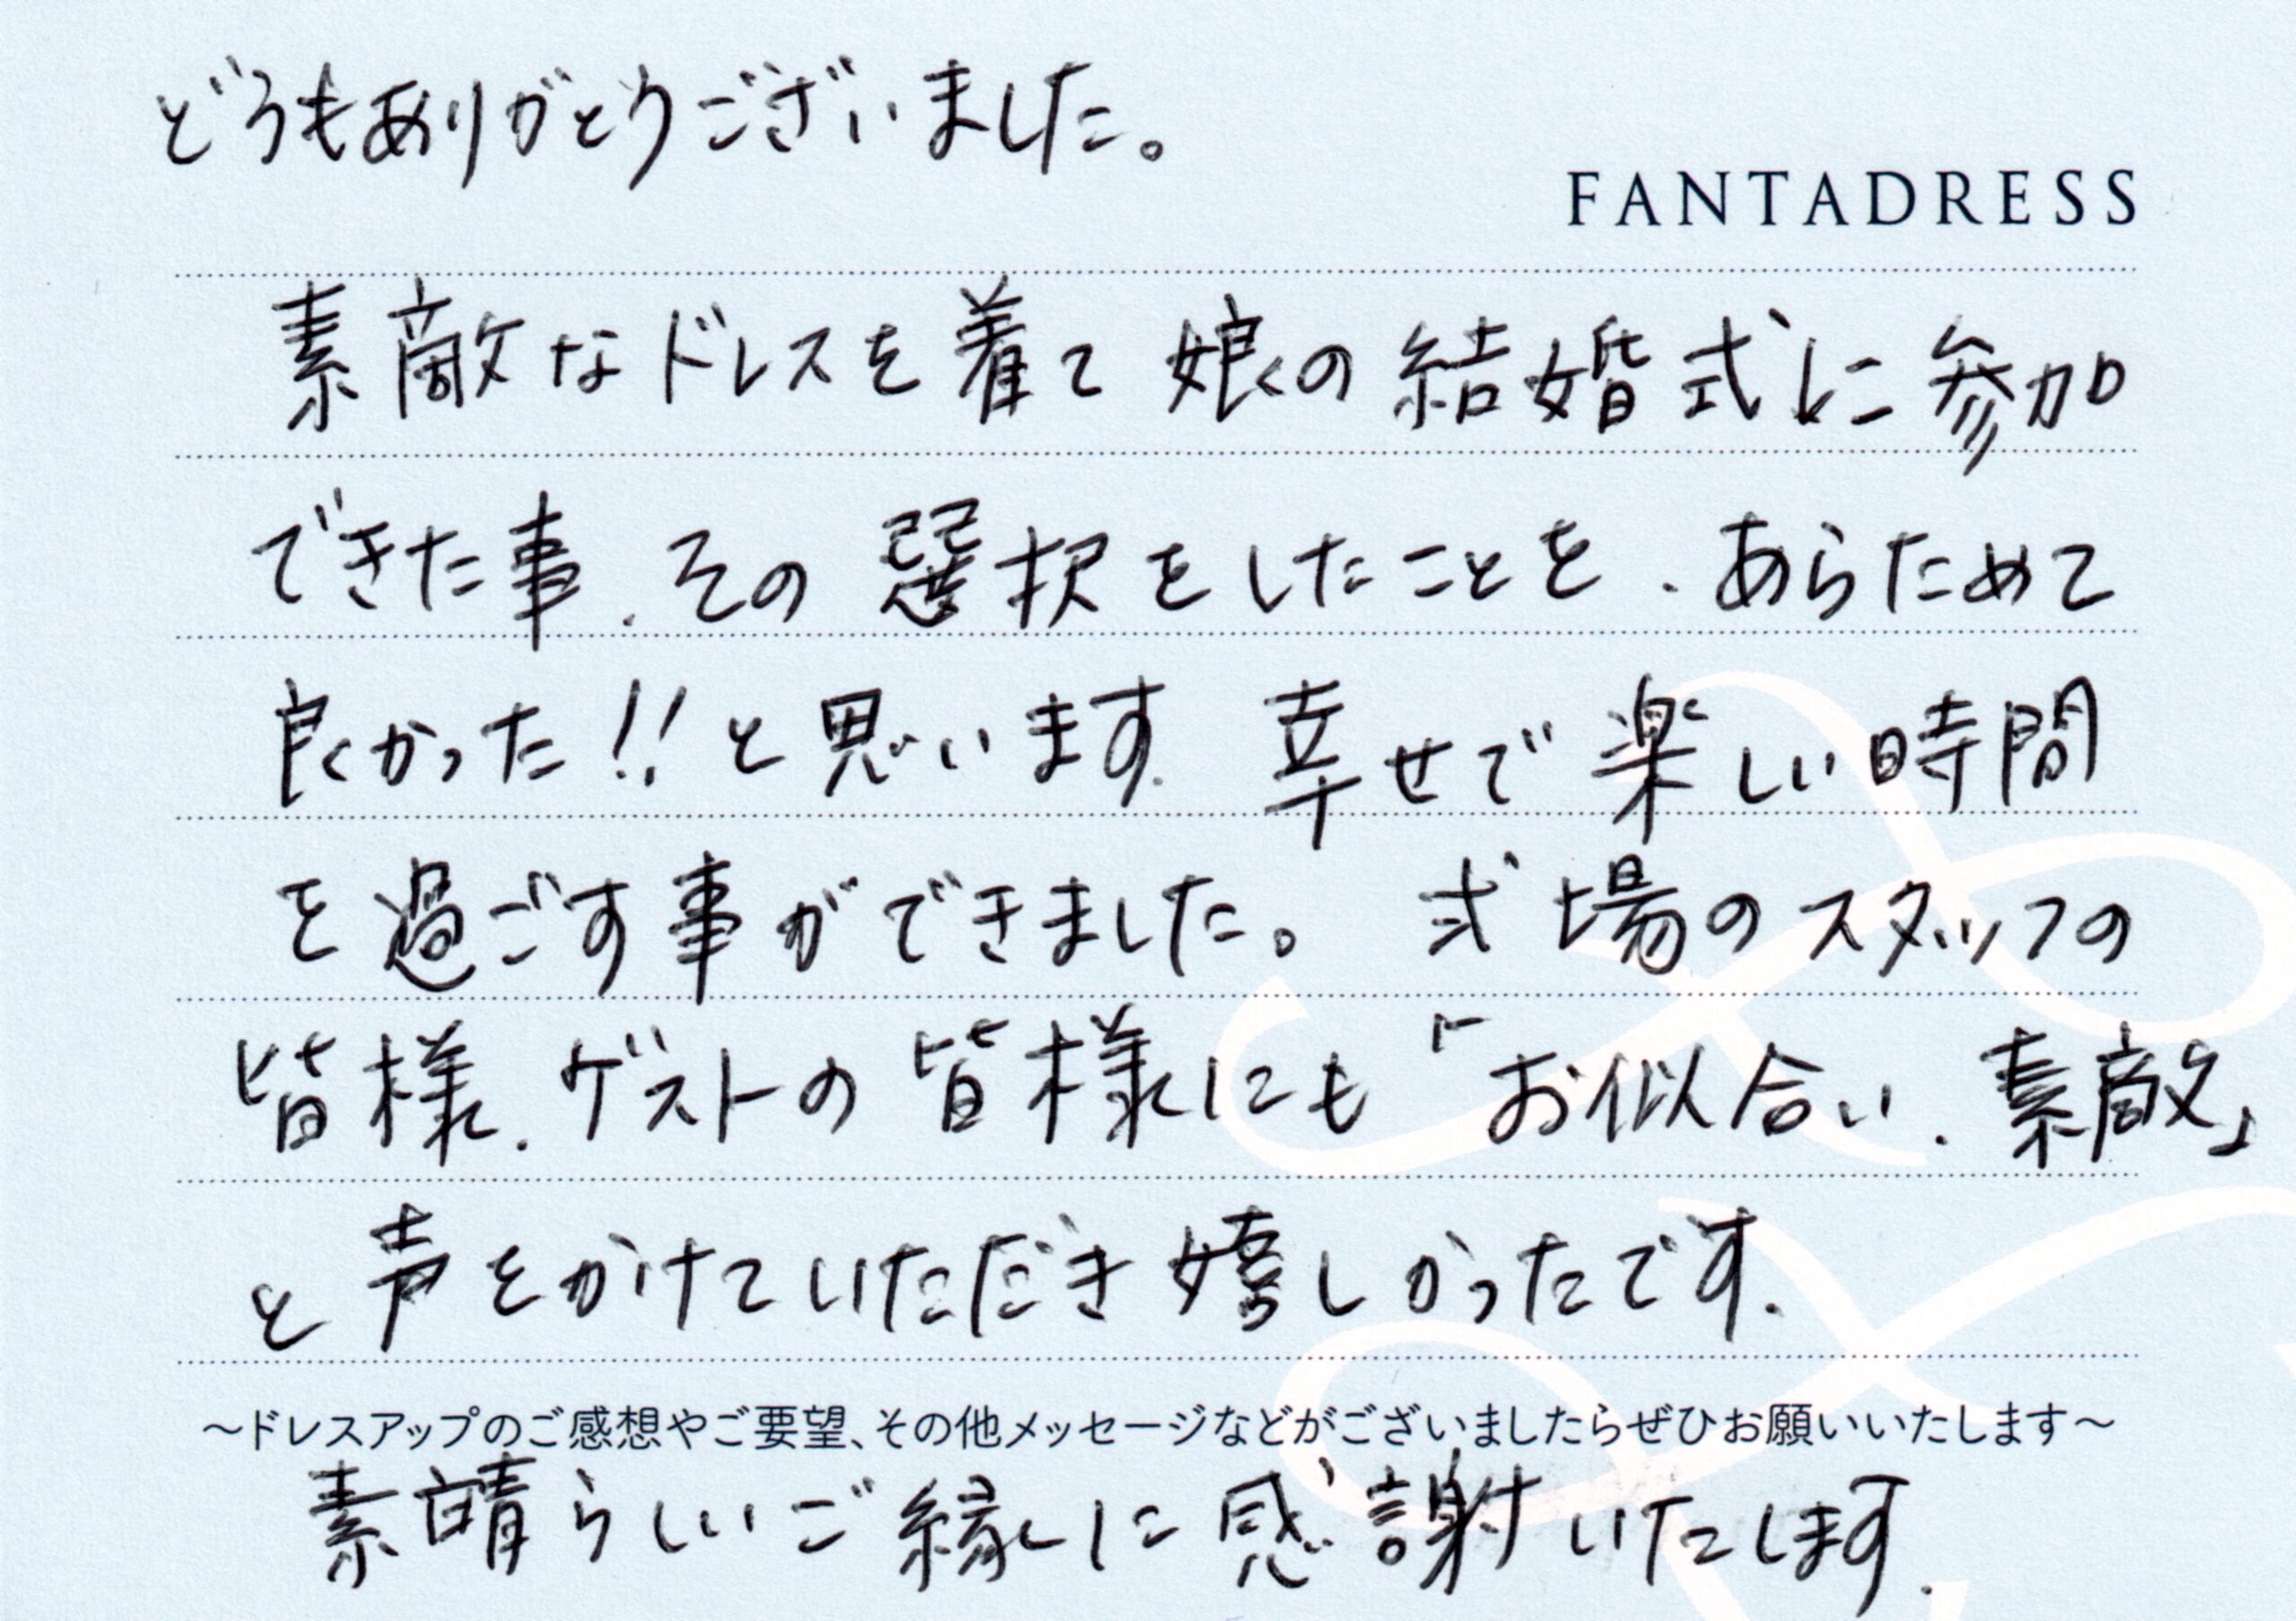 どうもありがとうございました。
FANTADRESS
素敵なドレスを着て娘の結婚式に参加
できた事、その選択をしたことを、あらためて
良かった!!と思います。幸せで楽しい時間
を過ごす事ができました。 式場のスタッフの
皆様、ゲストの皆様にも「お似合い、素敵」
と声をかけていただき嬉しかったです。
～ドレスアップのご感想やご要望、その他メッセージなどがございましたらぜひお願いいたします～
素晴らしいご縁に感謝いたします。